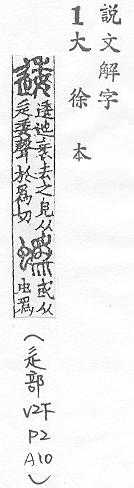 説文解字
1 大徐本
逶 逶迆衺去之皃从
辵委聲於爲切
蟡 或从
虫爲
(辵部 V2下 P2 A10)